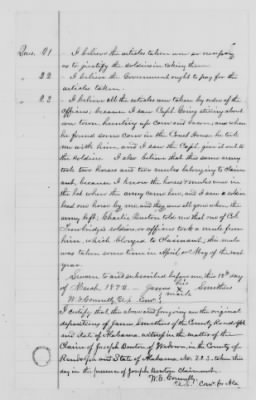 Ques. 21 - I believe the articles taken were so necessary
as to justify the soldiers in taking them.
" 22 - I believe the Government ought to pay for the
articles taken.
" 23 - I believe all the articles were taken by order of the
officers, because I saw Capt. going about
our town hunting up corn and bacon, and when
he found some corn in the Court House he took
me with him, and I saw the Capt. give it out to
the soldiers. I also believe that this same army
took two horses and two mules belonging to Claim-
ant, because I know the horses & mules were in
the lot when the army came here, and I saw a soldier
lead one horse by me and they were all gone when the
army left; Charlie Burton told me that one of Col.
soldiers or officers took a mule from
him, which belonged to Claimant, the mule
was taken some time in April or May of the next
year.
Sworn to and subscribed before me, this 12th day
of March, 1873. - James his X mark Smithers
W. F. Connelly U.S. Com'r.
I certify that the above and foregoing are the original
depositions of James Smithers of the County Randolph
and State of Alabama, witness in the matter of the
Claim of Joseph Burton of Wedowee, in the County of
Randolph and State of Alabama No. 223. taken this
day in the presence of Joseph Burton Claimant.
W. F. Connelly
Com'r for Ala